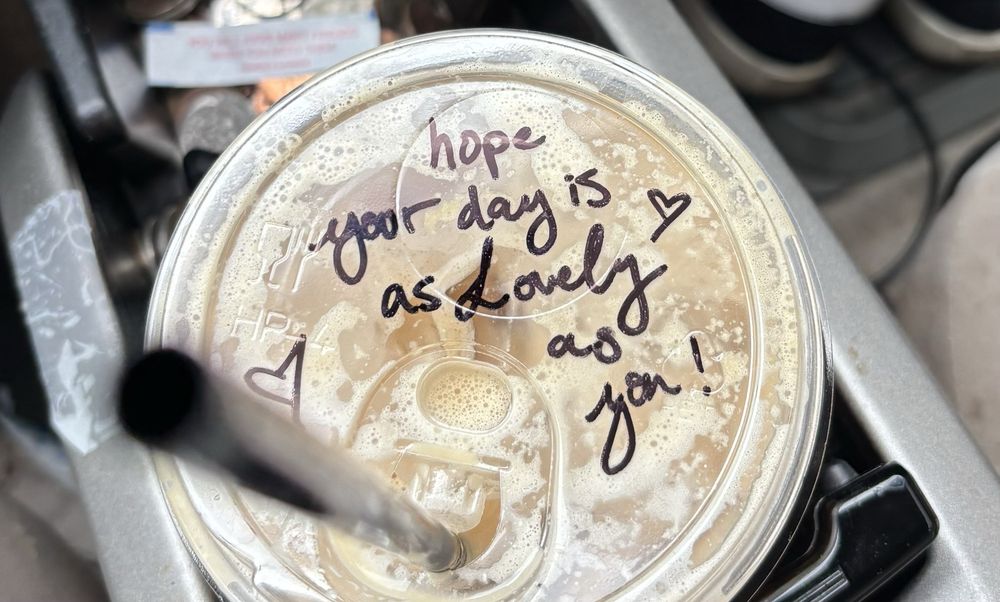 hope
your day is
as Lovely
as
you!